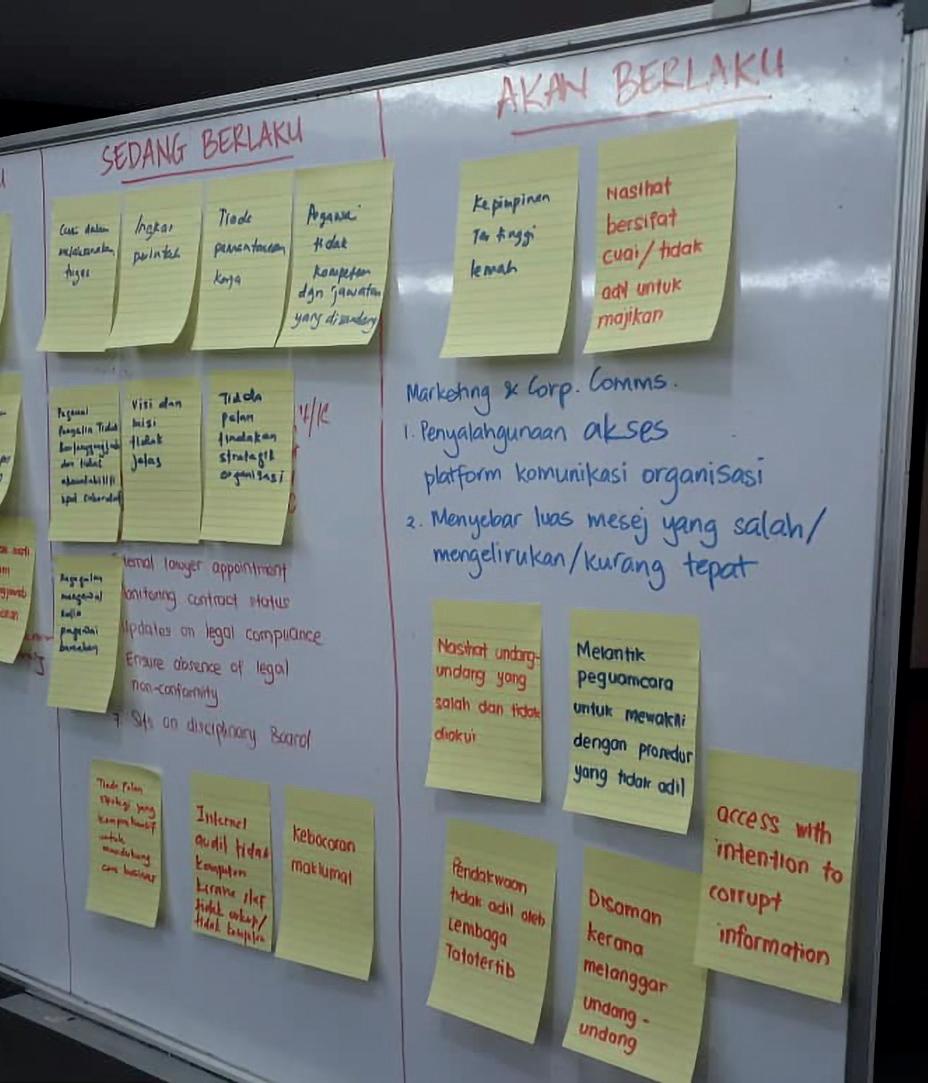 SEDANG BERLAKU
Cuai dalam
melaksanakan
tugas
Ingkar
perintah
Tiada
pemantauan
kerja
Pegawai
tidak
kompeten
dgn jawatan
yang disandang
Pegawai
tidak
dan tidak
Visi dan
misi
tidak
jelas
Tiada
pelan
tindakan
strategik
organisasi
mengawal
pegawai
bawahan
lawyer appointment
contract status
Updates on legal compliance
Ensure absence of legal
non-conformity
7. Sits on disciplinary Board
Tiada Pelan
yang
untuk
Internal
audit tidak
kompeten
kerana staf
tidak cukup/
tidak kompeten
kebocoran
maklumat
AKAN BERLAKU
Kepimpinan
Tertinggi
lemah
Nasihat
bersifat
cuai/tidak
adil untuk
majikan
Marketing & Corp. Comms.
1. Penyalahgunaan akses
platform komunikasi organisasi
2. Menyebar luas mesej yang salah/
mengelirukan/kurang tepat
Nasihat undang-
undang yang
salah dan tidak
diakui
Melantik
peguamcara
untuk mewakili
dengan prosedur
yang tidak adil
Pendakwaan
tidak adil oleh
Lembaga
Tatatertib
Disaman
kerana
melanggar
undang-
undang
access with
intention to
corrupt
information